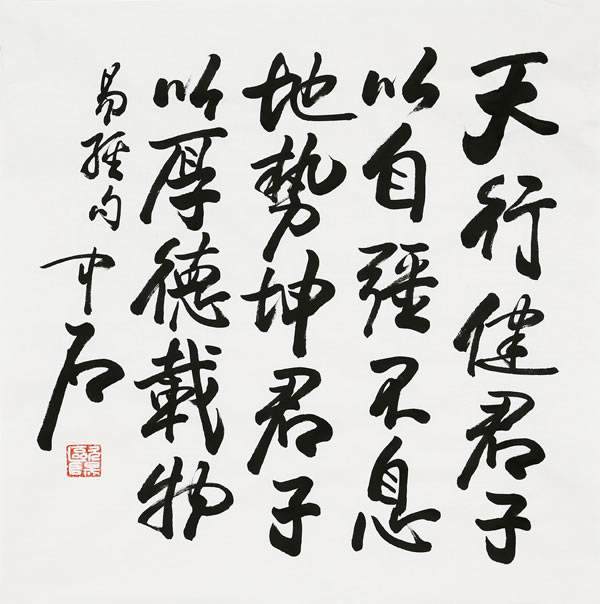 天行健君子
以自彊不息
地势坤君子
以厚德載物
易經句
中石